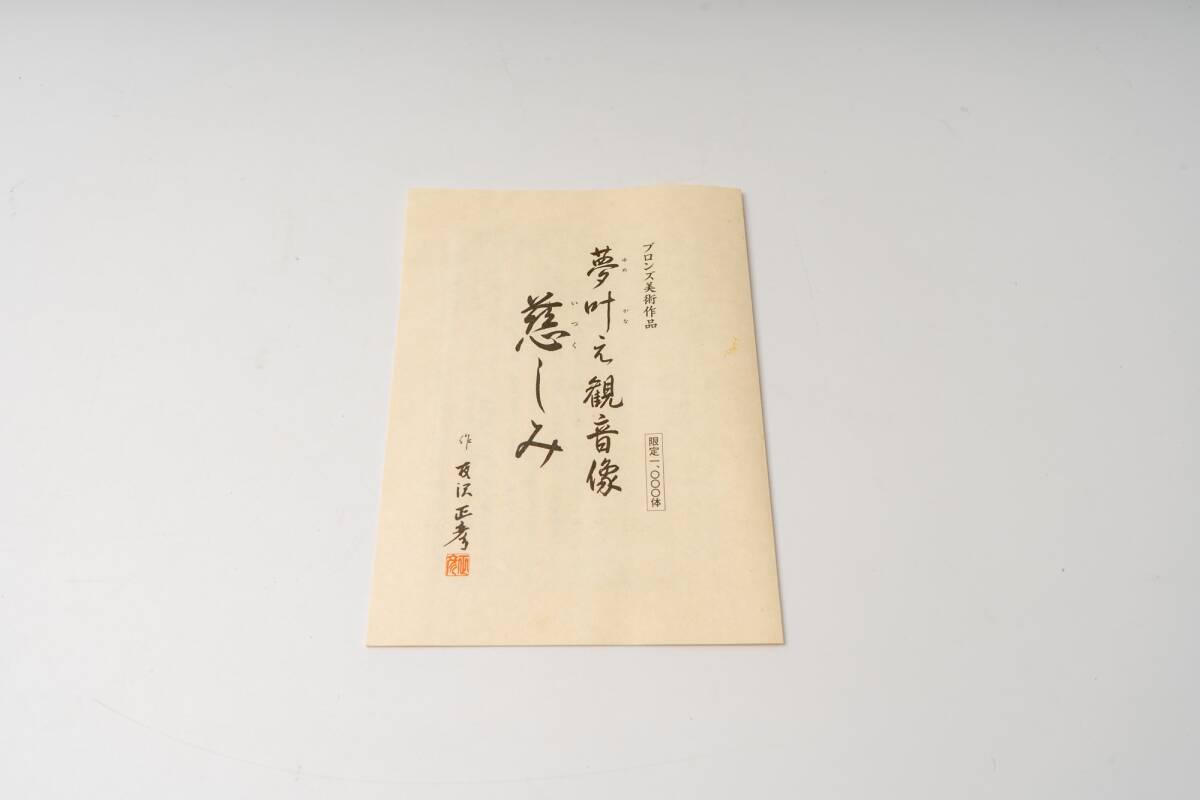 ブロンズ美術作品
限定一、〇〇〇体
夢叶え観音像
ゆめ かな
慈しみ
いつく
作 友沢正孝